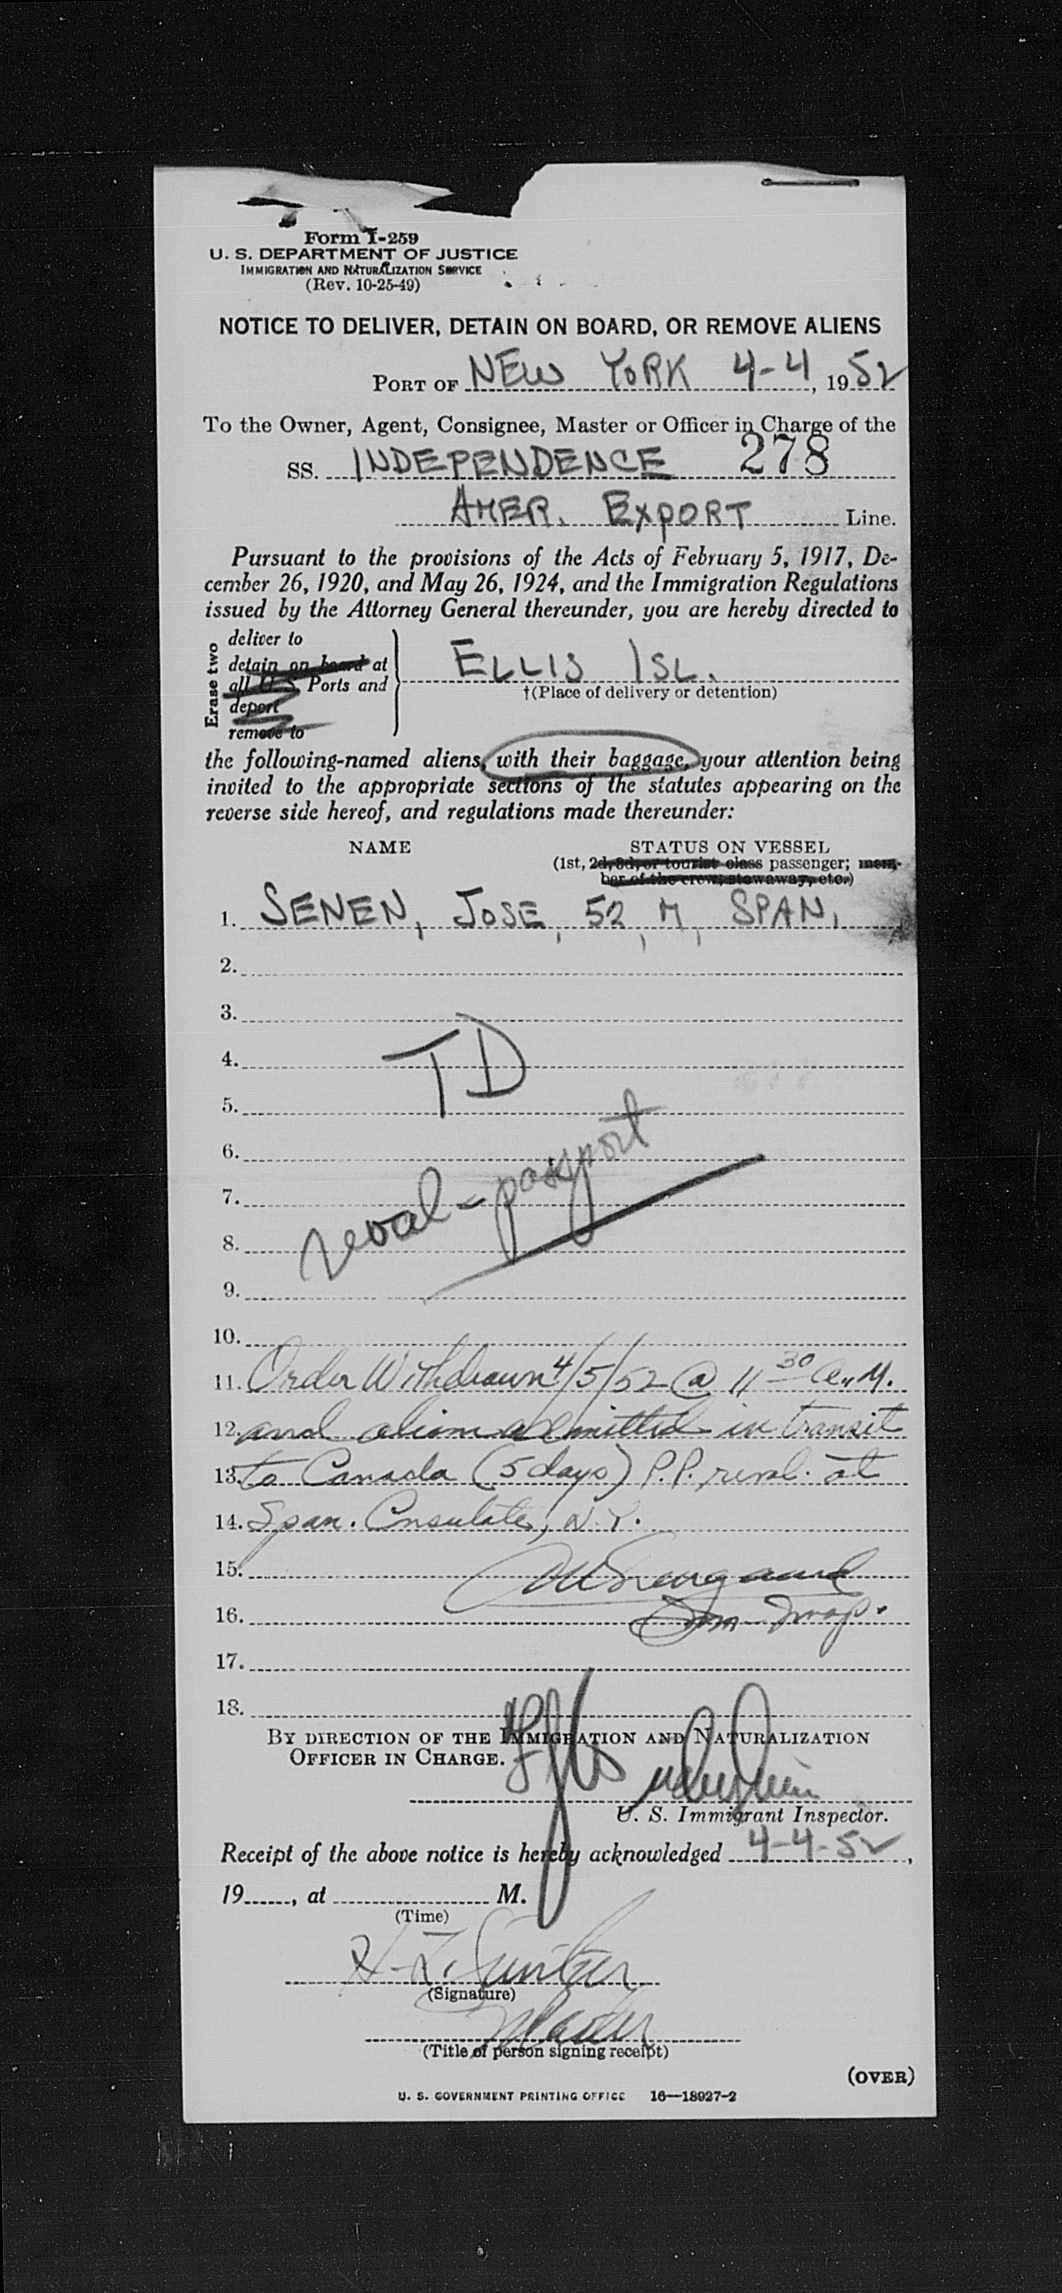 Form I-259
U. S. DEPARTMENT OF JUSTICE
IMMIGRATION AND NATURALIZATION SERVICE
(Rev. 10-25-49)
NOTICE TO DELIVER, DETAIN ON BOARD, OR REMOVE ALIENS
PORT OF NEW YORK 4-4, 1952
To the Owner, Agent, Consignee, Master or Officer in Charge of the
SS. INDEPENDENCE 278
AMER. EXPORT Line.
Pursuant to the provisions of the Acts of February 5, 1917, De-
cember 26, 1920, and May 26, 1924, and the Immigration Regulations
issued by the Attorney General thereunder, you are hereby directed to
Erase two
deliver to
detain on board at
all U.S. Ports and
deport
remove to
ELLIS ISL.
†(Place of delivery or detention)
the following-named aliens, with their baggage, your attention being
invited to the appropriate sections of the statutes appearing on the
reverse side hereof, and regulations made thereunder:
NAME STATUS ON VESSEL
(1st, 2d, 3d, or tourist class passenger; mem-
ber of the crew, stowaway, etc.)
1. SENEN, JOSE, 52, M, SPAN,
2.
3.
TD
4.
5.
6.
7. reval - passport
8.
9.
10.
11. Order Withdrawn 4/5/52 @ 11 30 A.M.
12. and alien admitted in transit
13. to Canada (5 days) P.P. reval. at
14. Span. Consulate, N.Y.
15.
16. Imm Insp.
17.
18.
BY DIRECTION OF THE IMMIGRATION AND NATURALIZATION
OFFICER IN CHARGE.
U. S. Immigrant Inspector.
Receipt of the above notice is hereby acknowledged 4-4-52,
19......, at M.
(Time)
(Signature)
(Title of person signing receipt)
(OVER)
U. S. GOVERNMENT PRINTING OFFICE 16—18927-2